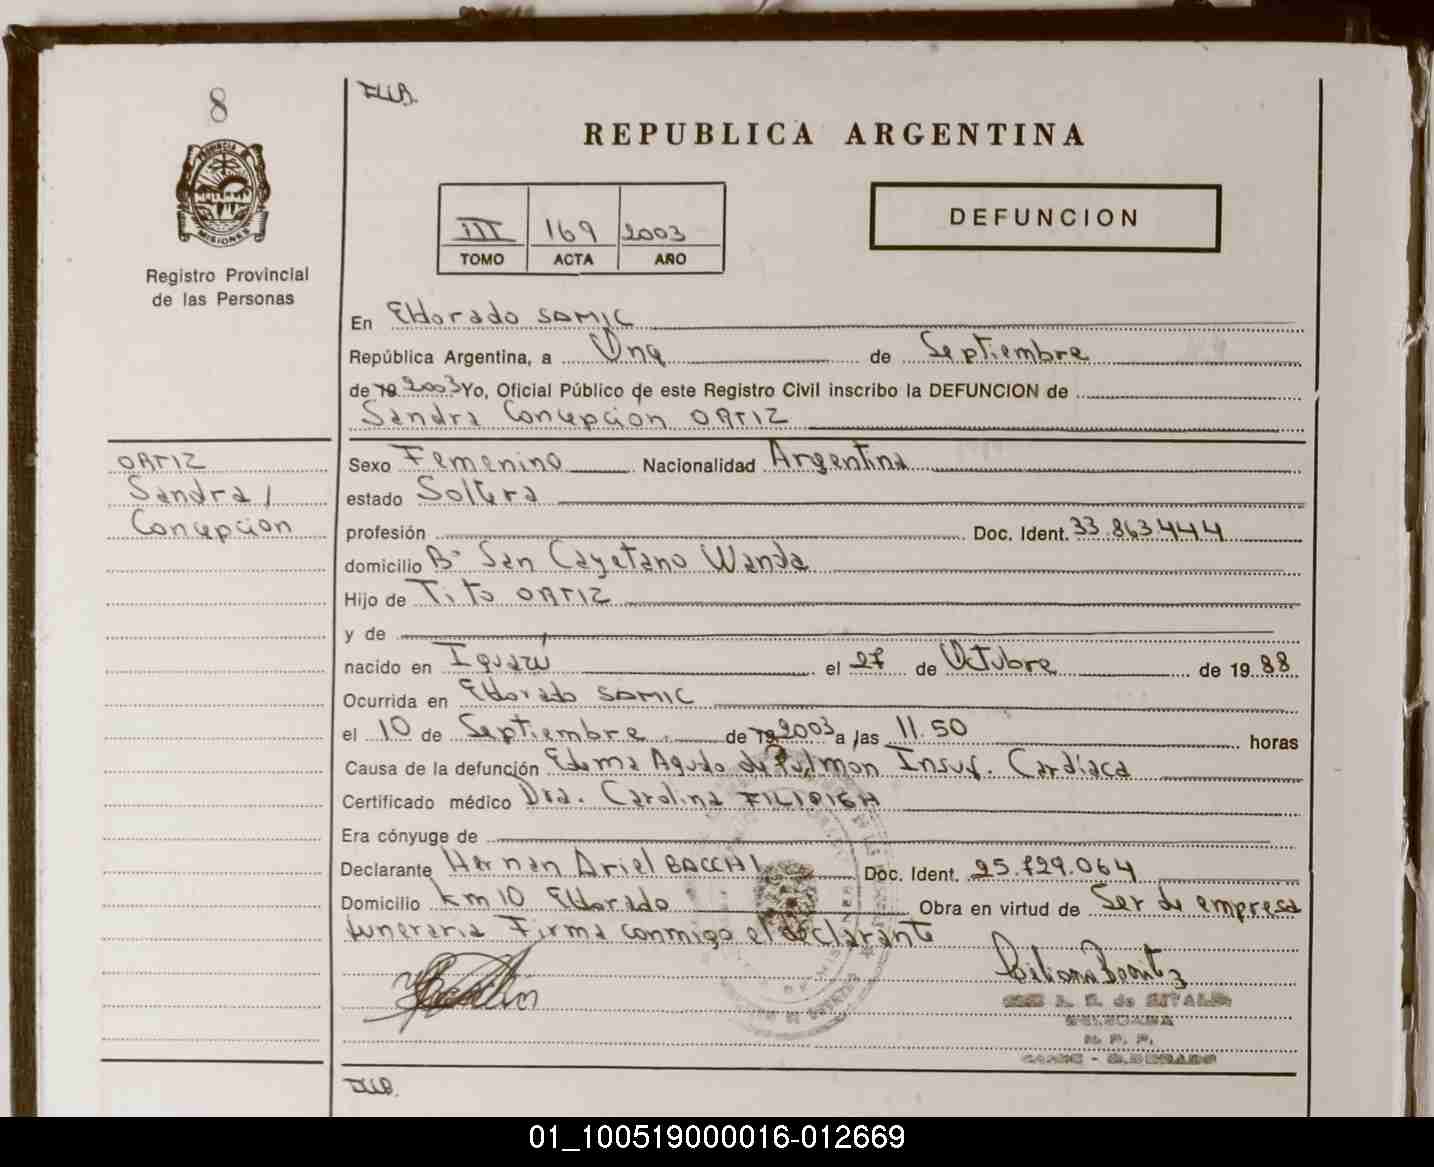 8
REPUBLICA ARGENTINA
PROVINCIA
MISIONES
Registro Provincial
de las Personas
III 169 2003
TOMO ACTA AÑO
DEFUNCION
En Eldorado SAMIC
República Argentina, a Once de Septiembre
de 19 2003 Yo, Oficial Público de este Registro Civil inscribo la DEFUNCION de
Sandra Concepción ORTIZ
ORTIZ
Sandra
Concepcion
Sexo Femenino Nacionalidad Argentina
estado Soltera
profesión Doc. Ident. 33.863.444
domicilio Bº San Cayetano Wanda
Hijo de Tito ORTIZ
y de
nacido en Iguazú el 27 de Octubre de 1988
Ocurrida en Eldorado SAMIC
el 10 de Septiembre de 19 2003 a las 11.50 horas
Causa de la defunción Edema Agudo de Pulmon Insuf. Cardiaca
Certificado médico Dra. Carolina
Era cónyuge de
Declarante Hernan Ariel BACCHI Doc. Ident. 25.729.064
Domicilio km 10 Eldorado Obra en virtud de Ser de empresa
funeraria Firma conmigo el declarante
01_100519000016-012669